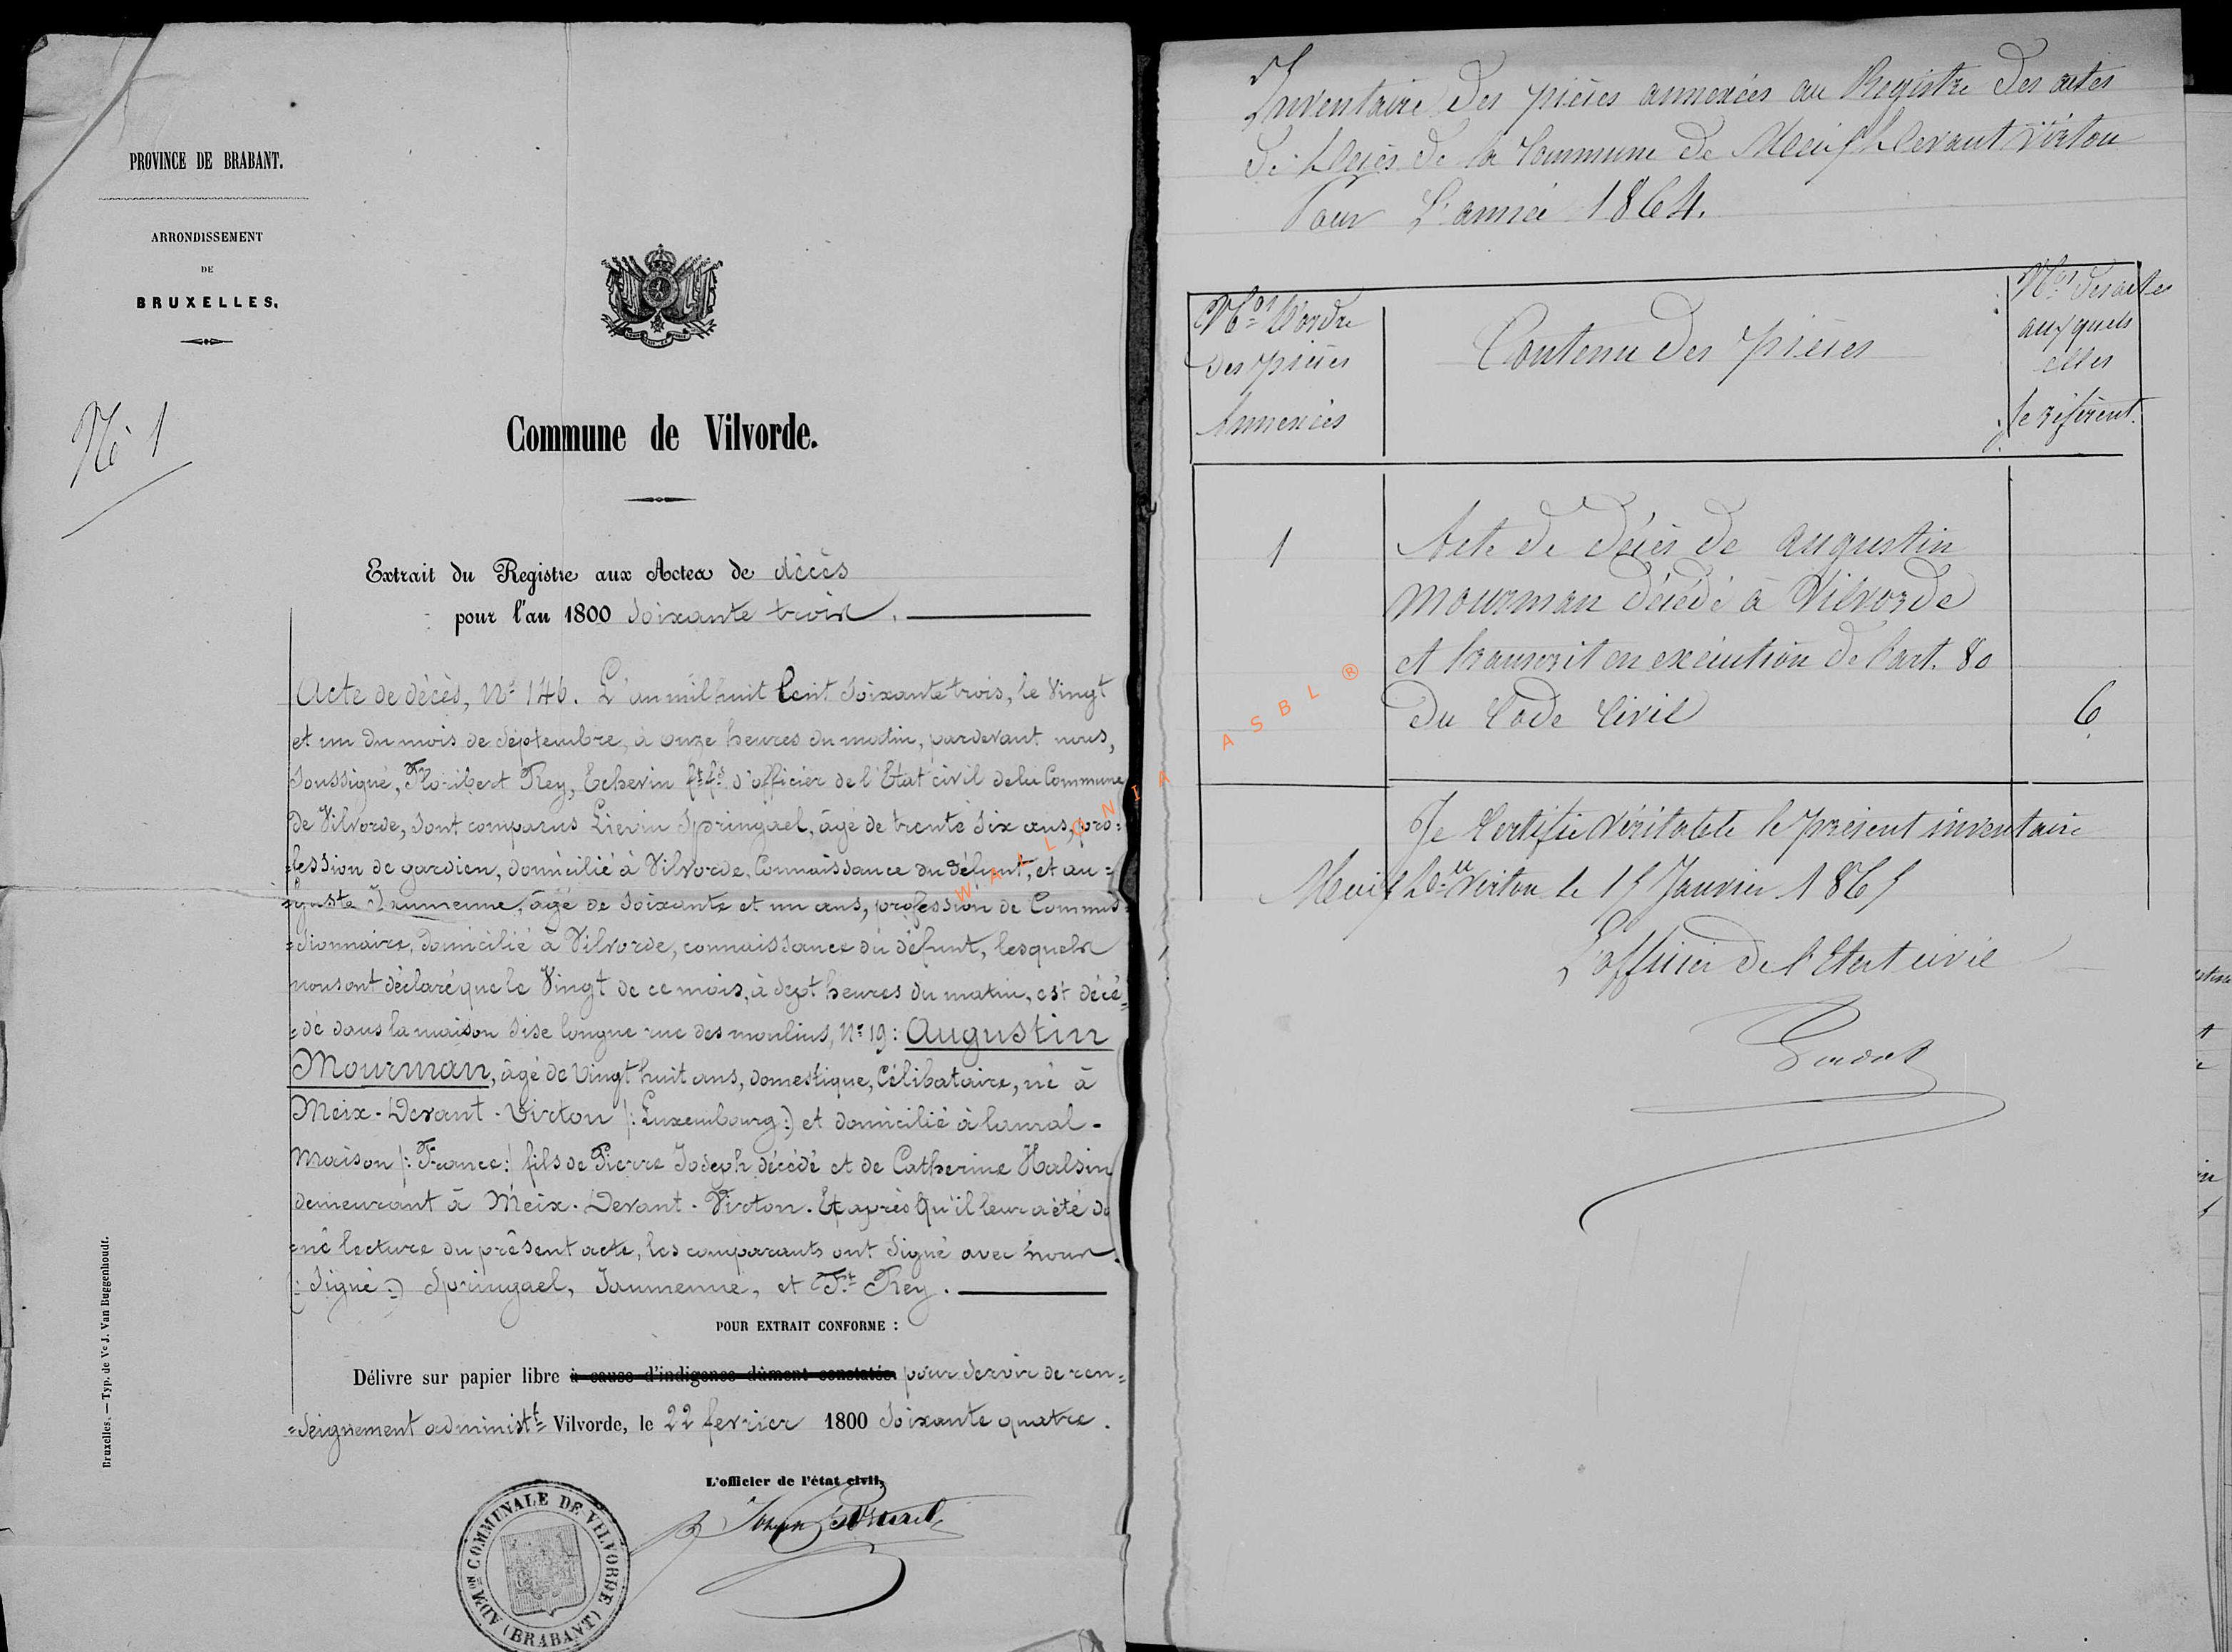 PROVINCE DE BRABANT.
ARRONDISSEMENT
DE
BRUXELLES.
No 1
Commune de Vilvorde.
Extrait du Registre aux Actes de décès
pour l'an 1800 Soixante trois.
Acte de décès, No 146. L'an mil huit Cent Soixante trois, le Vingt
et un du mois de Septembre, à onze heures du matin, pardevant nous,
Soussigné, Floribert Rey, Echevin ft fs d'officier de l'Etat civil de la Commune
de Vilvorde, Sont comparus Lievin Springael, âgé de trente Six ans, pro=
=fession de gardien, domicilié à Vilvorde, Connaissance du défunt, et au=
=guste Jaumenne, âgé de Soixante et un ans, profession de Commis=
=Sionnaire, domicilié à Vilvorde, connaissance du défunt, lesquels
nous ont déclaré que le Vingt de ce mois, à Sept heures du matin, est décé=
=dé dans la maison Sise longue rue des moulins, No 19: Augustin
Mourman, âgé de Vingt huit ans, domestique, Célibataire, né à
Meix-Devant-Virton (: Luxembourg :) et domicilié à lamal-
maison (: France :) fils de Pierre Joseph décédé et de Catherine Halsin
demeurant à Meix-Devant-Virton. Et après qu'il leur a été do
=né lecture du présent acte, les comparants ont Signé avec nous.
(: Signé :) Springael, Jaumenne, et Ft Rey.
POUR EXTRAIT CONFORME :
Délivre sur papier libre à cause d'indigence dûment constatée. pour Servir de ren=
=Seignement administt Vilvorde, le 22 fevrier 1800 Soixante quatre.
L'officier de l'état civil,
ADMON COMMUNALE DE VILVORDE (BRABANT)
Bruxelles. — Typ. de Ve J. Van Buggenhoudt.
WALLONIA ASBL ®
Inventaire des pièces annexées au Registre des actes
de Décès de la Commune de Meix Devant Virton
Pour L'année 1864.
Nos D'ordre
des pièces
Annexées
Contenu des pièces
Nos des actes
auxquels
elles
se réfèrent.
1
Acte de décès de augustin
mourman décédé à Vilvorde
et transcrit en exécution de l'art. 80
du Code Civil
6
Je Certifie véritable le présent inventaire
Meix Dt Virton le 15 Janvier 1865
L'officier de l'Etat civil